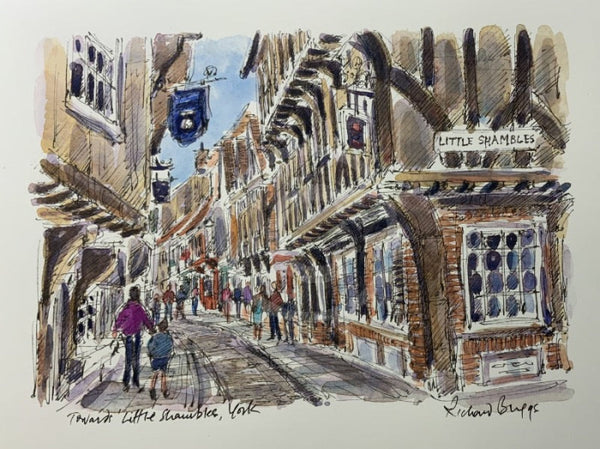 LITTLE SHAMBLES
Towards 'Little Shambles, York
Richard Briggs